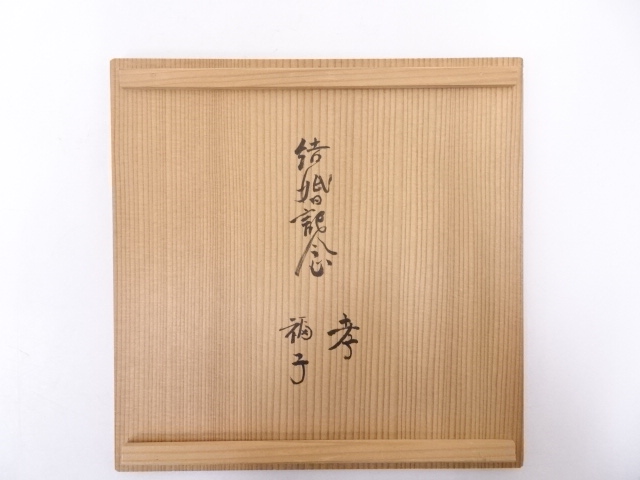 結婚記念
孝
福子